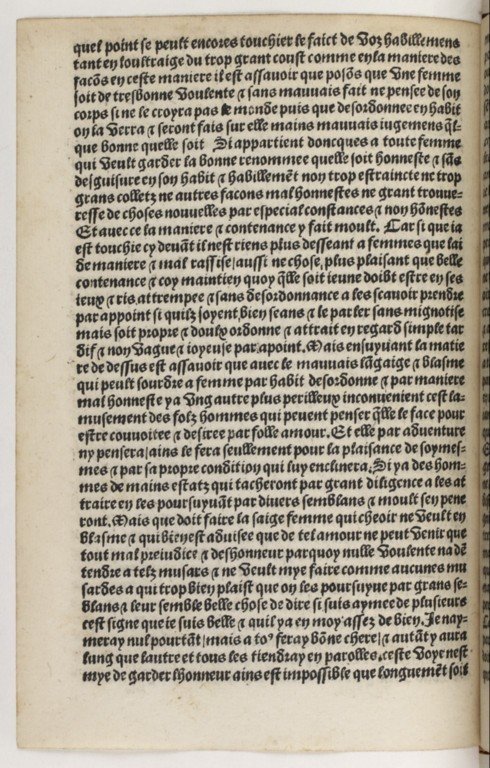 quel point se peult encores touchier le faict de voz habillemens
tant en loultraige du trop grant coust comme en la maniere des
facōs en ceste maniere il est assavoir que posōs que vne femme
soit de tresbonne voulente ⁊ sans mauuais fait ne pensee de son
corps si ne le croyra pas le monde puis que desordonnee en habit
on la verra ⁊ seront fais sur elle mains mauuais iugemens q̄l-
que bonne quelle soit Si appartient doncques a toute femme
qui veult garder la bonne renommee quelle soit honneste ⁊ sās
desguisure en son habit ⁊ habillemēt non trop estraincte ne trop
grans colletz ne autres facons mal honnestes ne grant trouue-
resse de choses nouuelles par especial constances ⁊ non hōnestes
Et auec ce la maniere ⁊ contenance y fait moult. Car si que ia
est touchie cy deuāt il nest riens plus desseant a femmes que lai
de maniere ⁊ mal rassise/aussi ne chose, plus plaisant que belle
contenance ⁊ coy maintien quoy q̄lle soit ieune doibt estre en ses
ieux ⁊ ris attrempee ⁊ sans desordonnance a les scauoir prendre
par appoint si quilz soyent bien seans ⁊ le parler sans mignotise
mais soit propre ⁊ doulx ordonne ⁊ attrait en regard simple tar
dif ⁊ non vague ⁊ ioyeuse par apoint. Mais ensuyuant la matie
re de dessus est assauoir que auec le mauuais lāgaige ⁊ blasme
qui peult sourdre a femme par habit desordonne ⁊ par maniere
mal honneste ya vng autre plus perilleux inconuenient cest la-
musement des folz hommes qui peuent penser q̄lle le face pour
estre couuoitee ⁊ desiree par folle amour. Et elle par aduenture
ny pensera/ains le fera seullement pour la plaisance de soymes-
mes ⁊ par sa propre condition qui luy enclinera. Si ya des hom-
mes de mains estatz qui tacheront par grant diligence a les at
traire en les poursuyuāt par diuers semblans ⁊ moult sey pene
ront. Mais que doit faire la saige femme qui cheoir ne veult en
blasme ⁊ qui bien est aduisee que de tel amour ne peut venir que
tout mal preiudice ⁊ deshonneur parquoy nulle voulente na dē
tendre a telz musars ⁊ ne veult mye faire comme aucunes mu
sardes a qui trop bien plaist que on les poursuyue par grans se-
blans ⁊ leur semble belle chose de dire si suis aymee de plusieurs
cest signe que ie suis belle ⁊ quil ya en moy assez de bien. Je nay-
meray nul pourtāt/mais a to⁹ feray bōne chere/⁊ autāt y aura
lung que lautre et tous les tiendray en parolles. ceste voye nest
mye de garder lhonneur ains est impossible que longuemēt soit